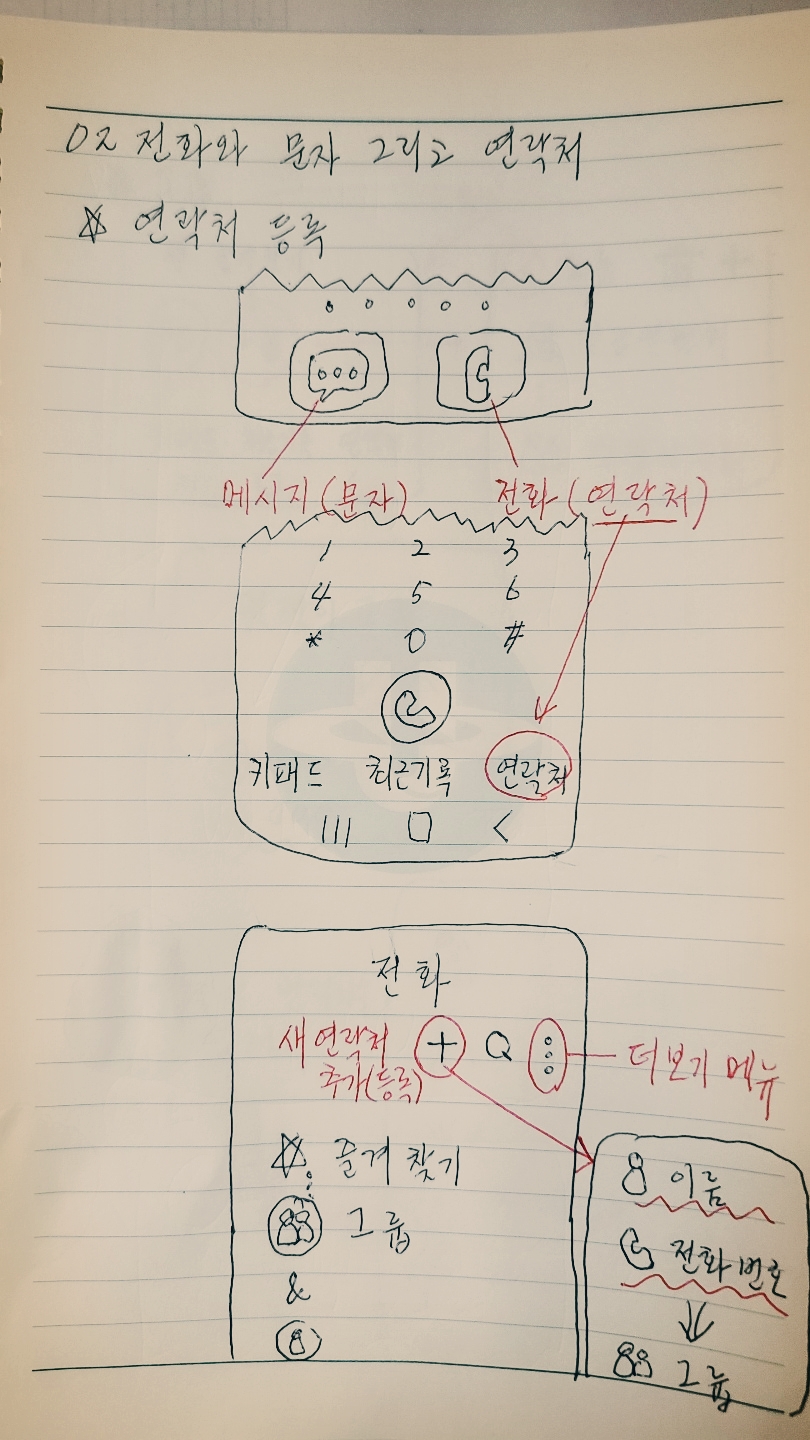 02 전화와 문자 그리고 연락처
☆ 연락처 등록
메시지(문자) 전화(연락처)
1 2 3
4 5 6
* 0 #
키패드 최근기록 연락처
||| □ <
전화
새연락처 + Q ⋮ 더보기 메뉴
추가(등록)
☆ 즐겨찾기
그룹
&
이름
전화번호
그룹